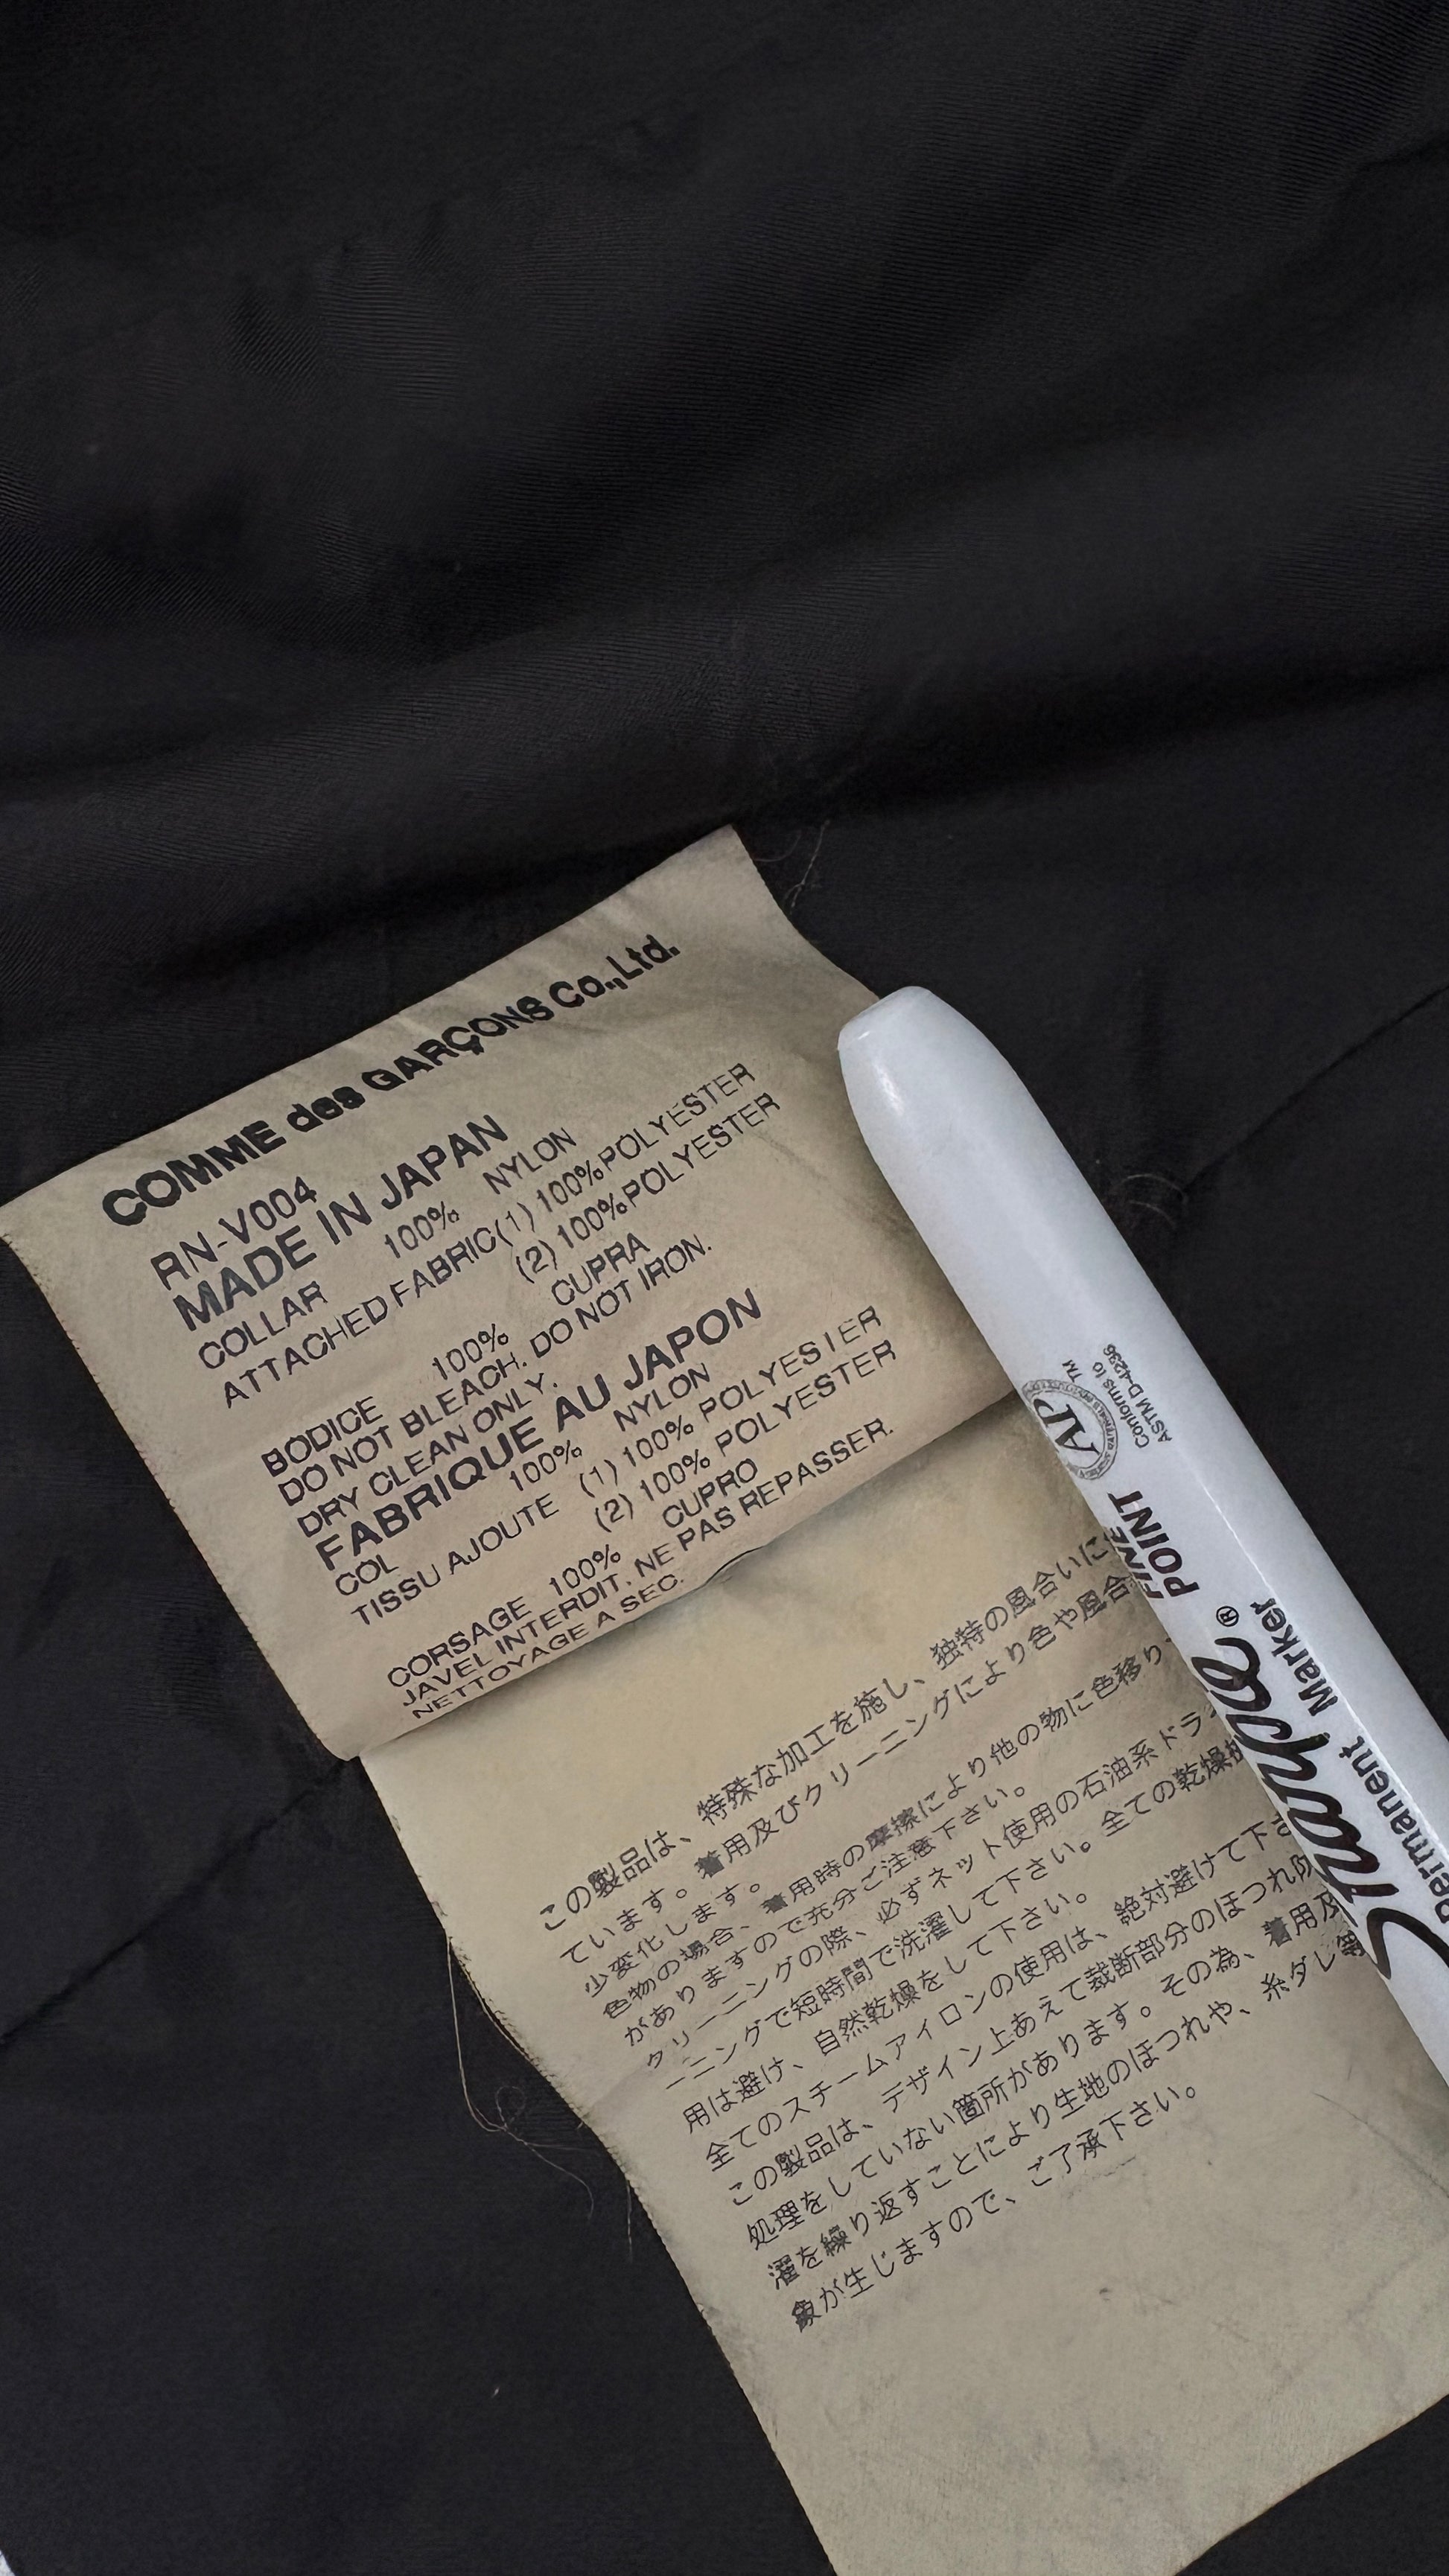 COMME des GARÇONS Co.,Ltd.
RN-V004
MADE IN JAPAN
COLLAR 100% NYLON
ATTACHED FABRIC(1) 100%POLYESTER
(2) 100%POLYESTER
BODICE 100% CUPRA
DO NOT BLEACH. DO NOT IRON.
DRY CLEAN ONLY.
FABRIQUE AU JAPON
COL 100% NYLON
TISSU AJOUTE (1) 100% POLYESTER
(2) 100% POLYESTER
CORSAGE 100% CUPRO
JAVEL INTERDIT. NE PAS REPASSER.
NETTOYAGE A SEC.
この製品は、特殊な加工を施し、独特の風合いに
ています。着用及びクリーニングにより色や風合
少変化します。
色物の場合、着用時の摩擦により他の物に色移り
がありますので充分ご注意下さい。
クリーニングの際、必ずネット使用の石油系ドラ
ーニングで短時間で洗濯して下さい。全ての乾燥
用は避け、自然乾燥をして下さい。
全てのスチームアイロンの使用は、絶対避けて下さ
この製品は、デザイン上あえて裁断部分のほつれ防
処理をしていない箇所があります。その為、着用及
濯を繰り返すことにより生地のほつれや、糸ダレ等
象が生じますので、ご了承下さい。
AP TM
Conforms to
ASTM D-4236
FINE
POINT
Sharpie®
Permanent Marker